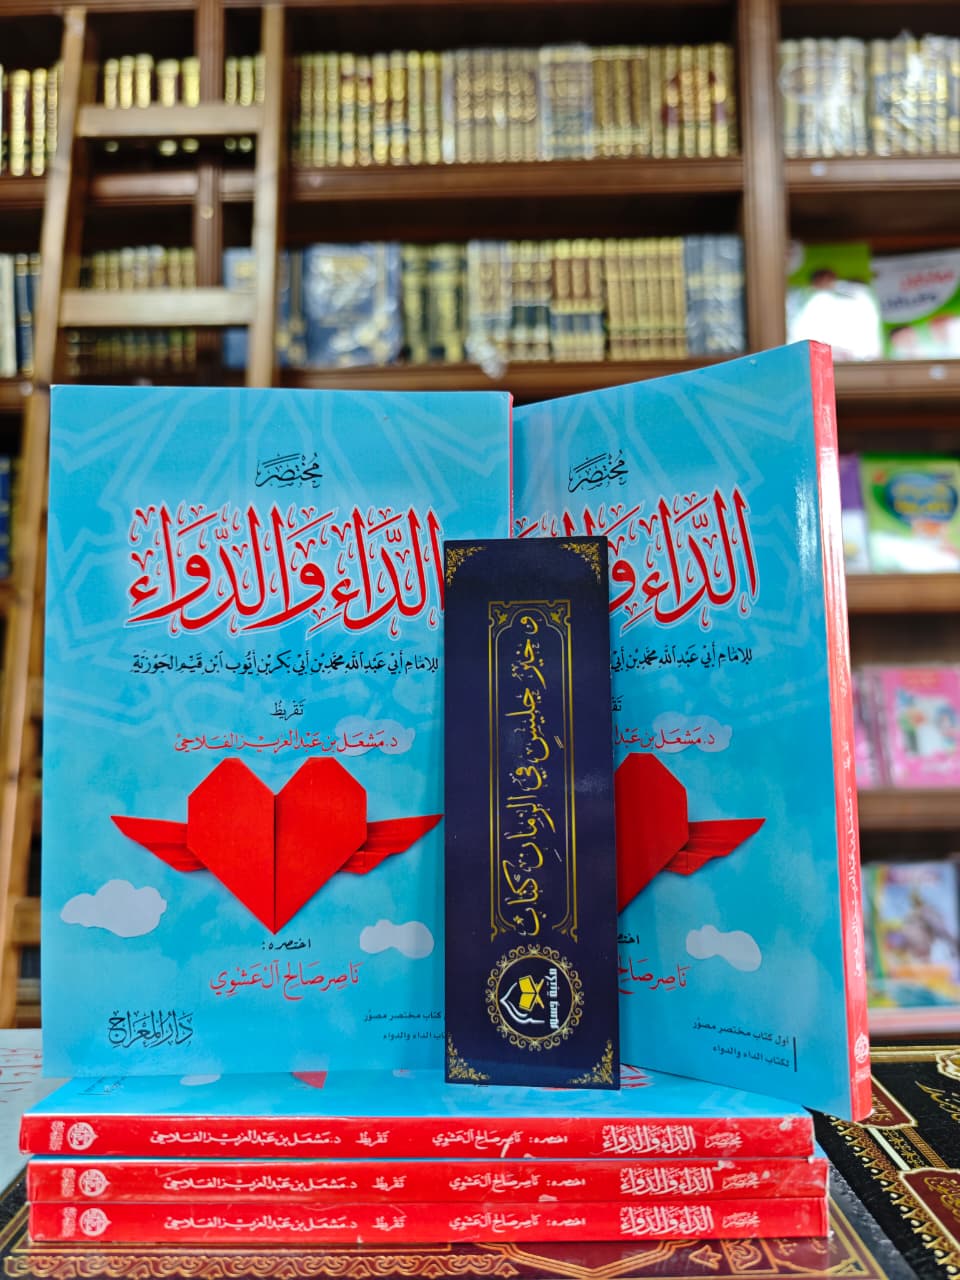 مُخْتَصَرُ
الدَّاءِ وَالدَّوَاءِ
للإمَامِ أبي عَبدِ اللَّه محمَّد بن أبي بَكر بْن أيّوب ابن قَيِّم الجَوزيَّة
تَقْريظُ
د.مَشعَل بن عَبدالعَزيز الفَلاحيّ
اختصره:
نَاصِر صَالح آل عَشوي
دَارُ المِعْرَاج
كتاب مختصر مصوّر
اب الداء والدواء
مُخْتَصَرُ
الدَّاءِ وَ
للإمَامِ أبي عَبدِ اللَّه محمَّد بن أبي
د.مَشعَل بن عَبدا
نَاصِر صَالح
أول كتاب مختصر مصوّر
لكتاب الداء والدواء
و خير جليسٍ في الزمانِ كتاب
مكتبة جسور
مختصر الدَّاءِ وَالدَّوَاءِ اختصره: نَاصِر صَالح آل عَشوي تَقْريظُ د.مَشعَل بن عَبدالعَزيز الفَلاحيّ
مختصر الدَّاءِ وَالدَّوَاءِ اختصره: نَاصِر صَالح آل عَشوي تَقْريظُ د.مَشعَل بن عَبدالعَزيز الفَلاحيّ
مختصر الدَّاءِ وَالدَّوَاءِ اختصره: نَاصِر صَالح آل عَشوي تَقْريظُ د.مَشعَل بن عَبدالعَزيز الفَلاحيّ